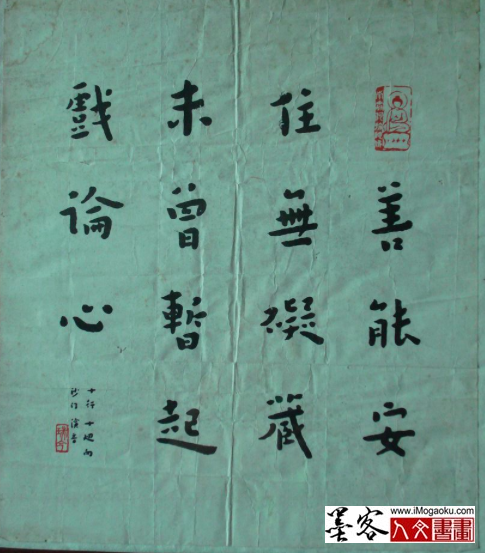 善能安
住無礙藏
未曾暫起
戲論心
演音
www.iMogaoku.com
墨客
人文書畫